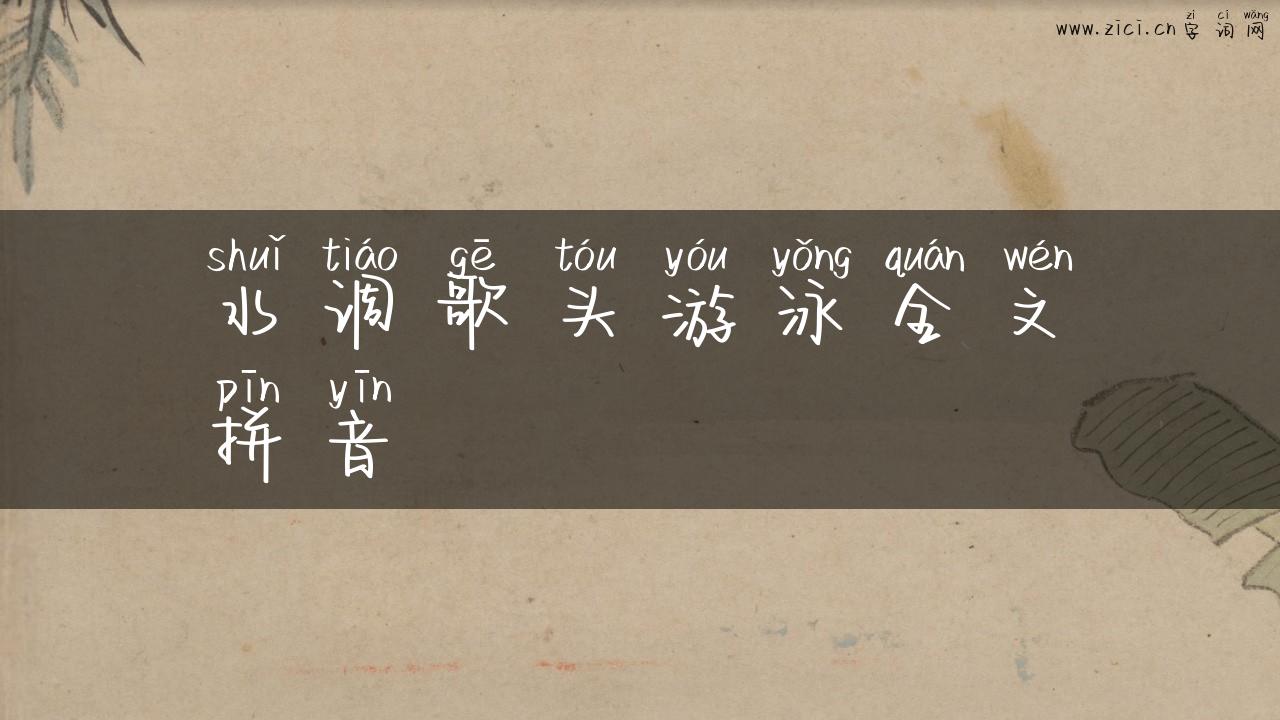 zì cí wǎng
www.zici.cn 字 词 网
shuǐ tiáo gē tóu yóu yǒng quán wén
水 调 歌 头 游 泳 全 文
pīn yīn
拼 音